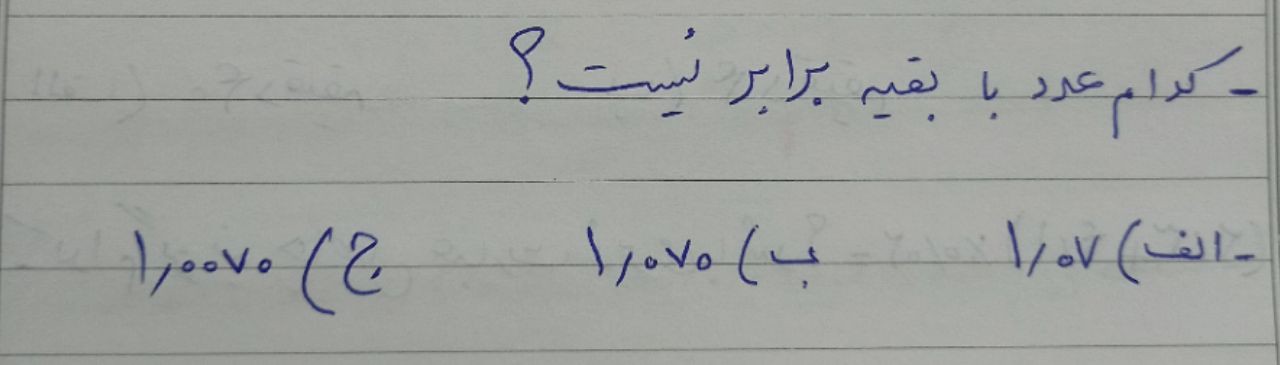 - کدام عدد با بقیه برابر نیست؟
- الف) ۱٫۰۷ ب) ۱٫۰۷۰ ج) ۱٫۰۰۷۰